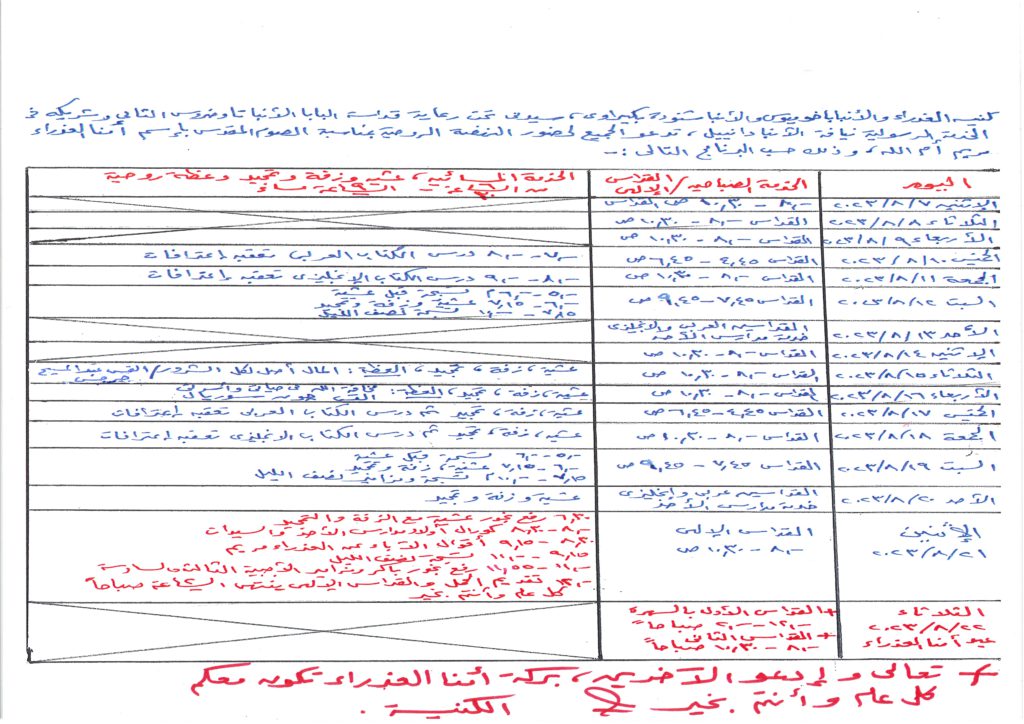 كنيسة العذراء والأنبا باخوميوس والأنبا شنودة بكيراوى، سيدنى تحت رعاية قداسة البابا الأنبا تاوضروس الثانى وشريكه فى
الخدمة الرسولية نيافة الأنبا دانييل، تدعو الجميع لحضور النهضة الروحية بمناسبة الصوم المقدس بإسم أمنا العذراء
مريم أم الله، وذلك حسب البرنامج التالى :-
اليوم الخدمة الصباحية/القداس الإلهى الخدمة المسائية، عشية وزفة وتمجيد وعظة روحية
من الساعة ٦,٣٠ - الساعة ٩ مساءً
الإثنين ٢٠٢٣/٨/٧ ٨,- - ١٠,٣٠ ص القداس
الثلاثاء ٢٠٢٣/٨/٨ القداس ٨,- - ١٠,٣٠ ص
الأربعاء ٢٠٢٣/٨/٩ القداس ٨,- - ١٠,٣٠ ص
الخميس ٢٠٢٣/٨/١٠ القداس ٤,٤٥ - ٦,٤٥ ص ٧,- - ٨,- درس الكتاب العربى تعقبه إعترافات
الجمعة ٢٠٢٣/٨/١١ القداس ٨,- - ١٠,٣٠ ص ٨,- - ٩,- درس الكتاب الإنجليزى تعقبه إعترافات
السبت ٢٠٢٣/٨/١٢ القداس ٧,٤٥ - ٩,٤٥ ص ٥,- - ٦,- تسبحة قبل عشية
٦,- - ٧,١٥ عشية وزفة وتمجيد
تسبحة نصف الليل
الأحد ٢٠٢٣/٨/١٣ القداسين العربى والإنجليزى
خدمة مدارس الأحد
الإثنين ٢٠٢٣/٨/١٤ القداس ٨,- - ١٠,٣٠ ص
الثلاثاء ٢٠٢٣/٨/١٥ القداس ٨,- - ١٠,٣٠ ص عشية، زفة، تمجيد، العظة: المال أصل لكل الشرور/القس عبد المسيح
الأربعاء ٢٠٢٣/٨/١٦ القداس ٨,- - ١٠,٣٠ ص عشية، زفة، تمجيد، العظة: مخافة الله فى حياتى
القس
الخميس ٢٠٢٣/٨/١٧ القداس ٤,٤٥ - ٦,٤٥ ص عشية، زفة، تمجيد ثم درس الكتاب العربى تعقبه إعترافات
الجمعة ٢٠٢٣/٨/١٨ القداس ٨,- - ١٠,٣٠ ص عشية، زفة، تمجيد ثم درس الكتاب الانجليزى تعقبه إعترافات
السبت ٢٠٢٣/٨/١٩ القداس ٧,٤٥ - ٩,٤٥ ص ٥,- - ٦,- تسبحة قبل عشية
٦,- - ٧,١٥ عشية، زفة وتمجيد
٧,١٥ - ١٠,- تسبحة نصف الليل
الأحد ٢٠٢٣/٨/٢٠ القداسين عربى وإنجليزى عشية وزفة وتمجيد
خدمة مدارس الأحد
الإثنين القداس الإلهى ٦,٣٠ رفع بخور عشية مع الزفة والتمجيد
٢٠٢٣/٨/٢١ ٨,- - ١٠,٣٠ ص ٨,- - ٨,٣٠ أولاد مدارس الأحد والسيدات
٨,٣٠ - ٩,١٥ أقوال الآباء عن العذراء مريم
٩,١٥ - ١١,- تسبحة نصف الليل
١١,- - ١١,٥٥ رفع بخور باكر الثالثة والسادسة
١٢,- تقديم الحمل والقداس الإلهى ينتهى الساعة ٢ صباحاً
كل عام وأنتم بخير
الثلاثاء + القداس الأول بالسهرة
٢٠٢٣/٨/٢٢ ١٢,- - ٢,- صباحاً
عيد أمنا العذراء + القداس الثانى
٨,- - ١٠,٣٠ صباحاً
+ تعالى وإدعو الآخرين، بركة أمنا العذراء تكون معكم
كل عام وأنتم بخير الكنيسة.